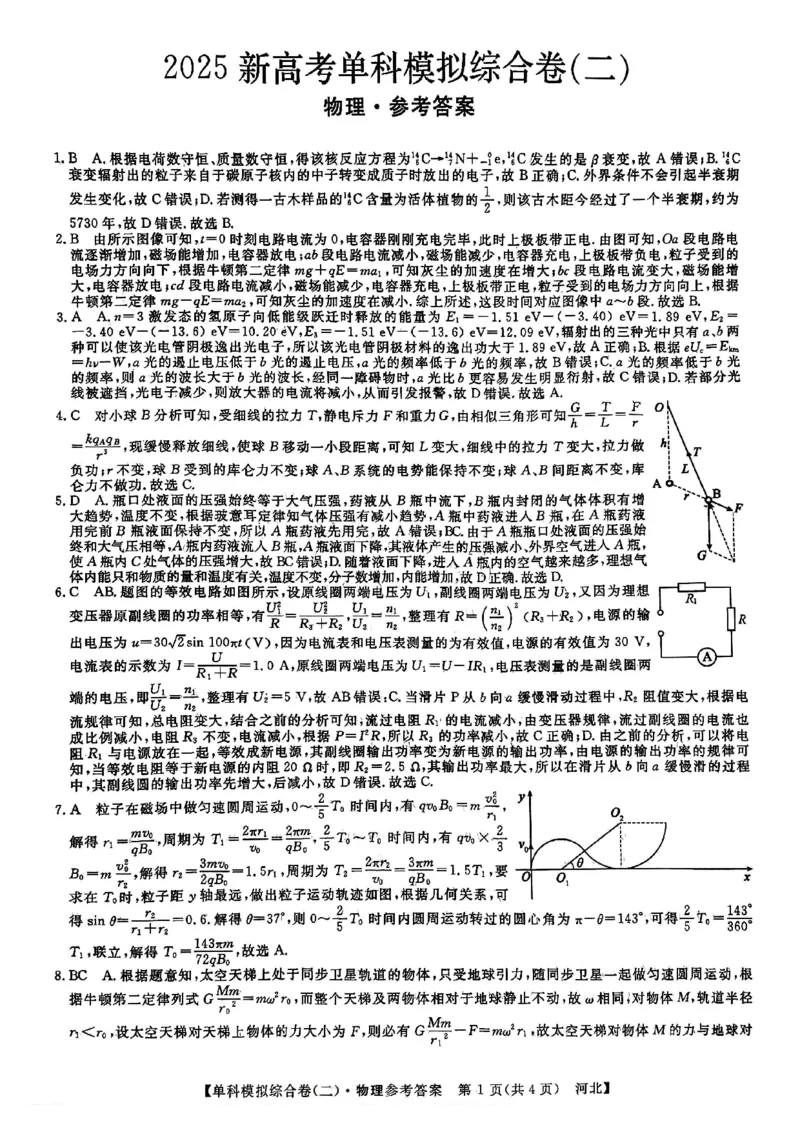 2025 新高考单科模拟综合卷(二)
物理·参考答案
1. B A. 根据电荷数守恒、质量数守恒,得该核反应方程为¹⁴₆C→¹⁴₇N+⁰₋₁e,¹⁴₆C 发生的是 β 衰变,故 A 错误;B. ¹⁴₆C
衰变辐射出的粒子来自于碳原子核内的中子转变成质子时放出的电子,故 B 正确;C. 外界条件不会引起半衰期
发生变化,故 C 错误;D. 若测得一古木样品的¹⁴₆C 含量为活体植物的 1/2,则该古木距今经过了一个半衰期,约为
5730 年,故 D 错误. 故选 B.
2. B 由所示图像可知,t=0 时刻电路电流为 0,电容器刚刚充电完毕,此时上极板带正电. 由图可知,Oa 段电路电
流逐渐增加,磁场能增加,电容器放电;ab 段电路电流减小,磁场能减少,电容器充电,上极板带负电,粒子受到的
电场力方向向下,根据牛顿第二定律 mg+qE=ma₁,可知灰尘的加速度在增大;bc 段电路电流变大,磁场能增
大,电容器放电;cd 段电路电流减小,磁场能减少,电容器充电,上极板带正电,粒子受到的电场力方向向上,根据
牛顿第二定律 mg−qE=ma₂,可知灰尘的加速度在减小. 综上所述,这段时间对应图像中 a~b 段. 故选 B.
3. A A. n=3 激发态的氢原子向低能级跃迁时释放的能量为 E₁=−1.51 eV−(−3.40) eV=1.89 eV,E₂=
−3.40 eV−(−13.6) eV=10.20 eV,E₃=−1.51 eV−(−13.6) eV=12.09 eV,辐射出的三种光中只有 a、b 两
种可以使该光电管阴极逸出光电子,所以该光电管阴极材料的逸出功大于 1.89 eV,故 A 正确;B. 根据 eUc=Ekm
=hν−W,a 光的遏止电压低于 b 光的遏止电压,a 光的频率低于 b 光的频率,故 B 错误;C. a 光的频率低于 b 光
的频率,则 a 光的波长大于 b 光的波长,经同一障碍物时,a 光比 b 更容易发生明显衍射,故 C 错误;D. 若部分光
线被遮挡,光电子减少,则放大器的电流将减小,从而引发报警,故 D 错误. 故选 A.
4. C 对小球 B 分析可知,受细线的拉力 T,静电斥力 F 和重力 G,由相似三角形可知 G/h=T/L=F/r
=kqAqB/r³,现缓慢释放细线,使球 B 移动一小段距离,可知 L 变大,细线中的拉力 T 变大,拉力做
负功;r 不变,球 B 受到的库仑力不变;球 A、B 系统的电势能保持不变;球 A、B 间距离不变,库
仑力不做功. 故选 C.
O
h
T
L
A
r
B
F
G
5. D A. 瓶口处液面的压强始终等于大气压强,药液从 B 瓶中流下,B 瓶内封闭的气体体积有增
大趋势,温度不变,根据玻意耳定律知气体压强有减小趋势,A 瓶中药液进入 B 瓶,在 A 瓶药液
用完前 B 瓶液面保持不变,所以 A 瓶药液先用完,故 A 错误;BC. 由于 A 瓶瓶口处液面的压强始
终和大气压相等,A 瓶内药液流入 B 瓶,A 瓶液面下降,其液体产生的压强减小、外界空气进入 A 瓶,
使 A 瓶内 C 处气体的压强增大,故 BC 错误;D. 随着液面下降,进入 A 瓶内的空气越来越多,理想气
体内能只和物质的量和温度有关,温度不变,分子数增加,内能增加,故 D 正确. 故选 D.
6. C AB. 题图的等效电路如图所示,设原线圈两端电压为 U₁,副线圈两端电压为 U₂,又因为理想
变压器原副线圈的功率相等,有 U₁²/R=U₂²/(R₃+R₂),U₁/U₂=n₁/n₂,整理有 R=(n₁/n₂)²(R₃+R₂),电源的输
出电压为 u=30√2sin 100πt(V),因为电流表和电压表测量的为有效值,电源的有效值为 30 V,
电流表的示数为 I=U/(R₁+R)=1.0 A,原线圈两端电压为 U₁=U−IR₁,电压表测量的是副线圈两
R₁
R
A
端的电压,即 U₁/U₂=n₁/n₂,整理有 U₂=5 V,故 AB 错误;C. 当滑片 P 从 b 向 a 缓慢滑动过程中,R₂ 阻值变大,根据电
流规律可知,总电阻变大,结合之前的分析可知,流过电阻 R₁ 的电流减小,由变压器规律,流过副线圈的电流也
成比例减小,电阻 R₃ 不变,电流减小,根据 P=I²R,所以 R₃ 的功率减小,故 C 正确;D. 由之前的分析,可以将电
阻 R₁ 与电源放在一起,等效成新电源,其副线圈输出功率变为新电源的输出功率,由电源的输出功率的规律可
知,当等效电阻等于新电源的内阻 20 Ω 时,即 R₂=2.5 Ω,其输出功率最大,所以在滑片从 b 向 a 缓慢滑的过程
中,其副线圆的输出功率先增大,后减小,故 D 错误. 故选 C.
7. A 粒子在磁场中做匀速圆周运动,0~2/5 T₀ 时间内,有 qv₀B₀=m v₀²/r₁,
解得 r₁=mv₀/qB₀,周期为 T₁=2πr₁/v₀=2πm/qB₀,2/5 T₀~T₀ 时间内,有 qv₀×2/3
B₀=m v₀²/r₂,解得 r₂=3mv₀/2qB₀=1.5r₁,周期为 T₂=2πr₂/v₀=3πm/qB₀=1.5T₁,要
求在 T₀时,粒子距 y 轴最远,做出粒子运动轨迹如图,根据几何关系,可
y
O₂
v₀
θ
O
O₁
x
得 sin θ=r₂/(r₁+r₂)=0.6. 解得 θ=37°,则 0~2/5 T₀ 时间内圆周运动转过的圆心角为 π−θ=143°,可得 2/5 T₀=143°/360°
T₁,联立,解得 T₀=143πm/72qB₀,故选 A.
8. BC A. 根据题意知,太空天梯上处于同步卫星轨道的物体,只受地球引力,随同步卫星一起做匀速圆周运动,根
据牛顿第二定律列式 G Mm/r₀²=mω²r₀,而整个天梯及两物体相对于地球静止不动,故 ω 相同,对物体 M,轨道半径
r₁<r₀,设太空天梯对天梯上物体的力大小为 F,则必有 G Mm/r₁²−F=mω²r₁,故太空天梯对物体 M 的力与地球对
【单科模拟综合卷(二)·物理参考答案 第 1 页(共 4 页) 河北】